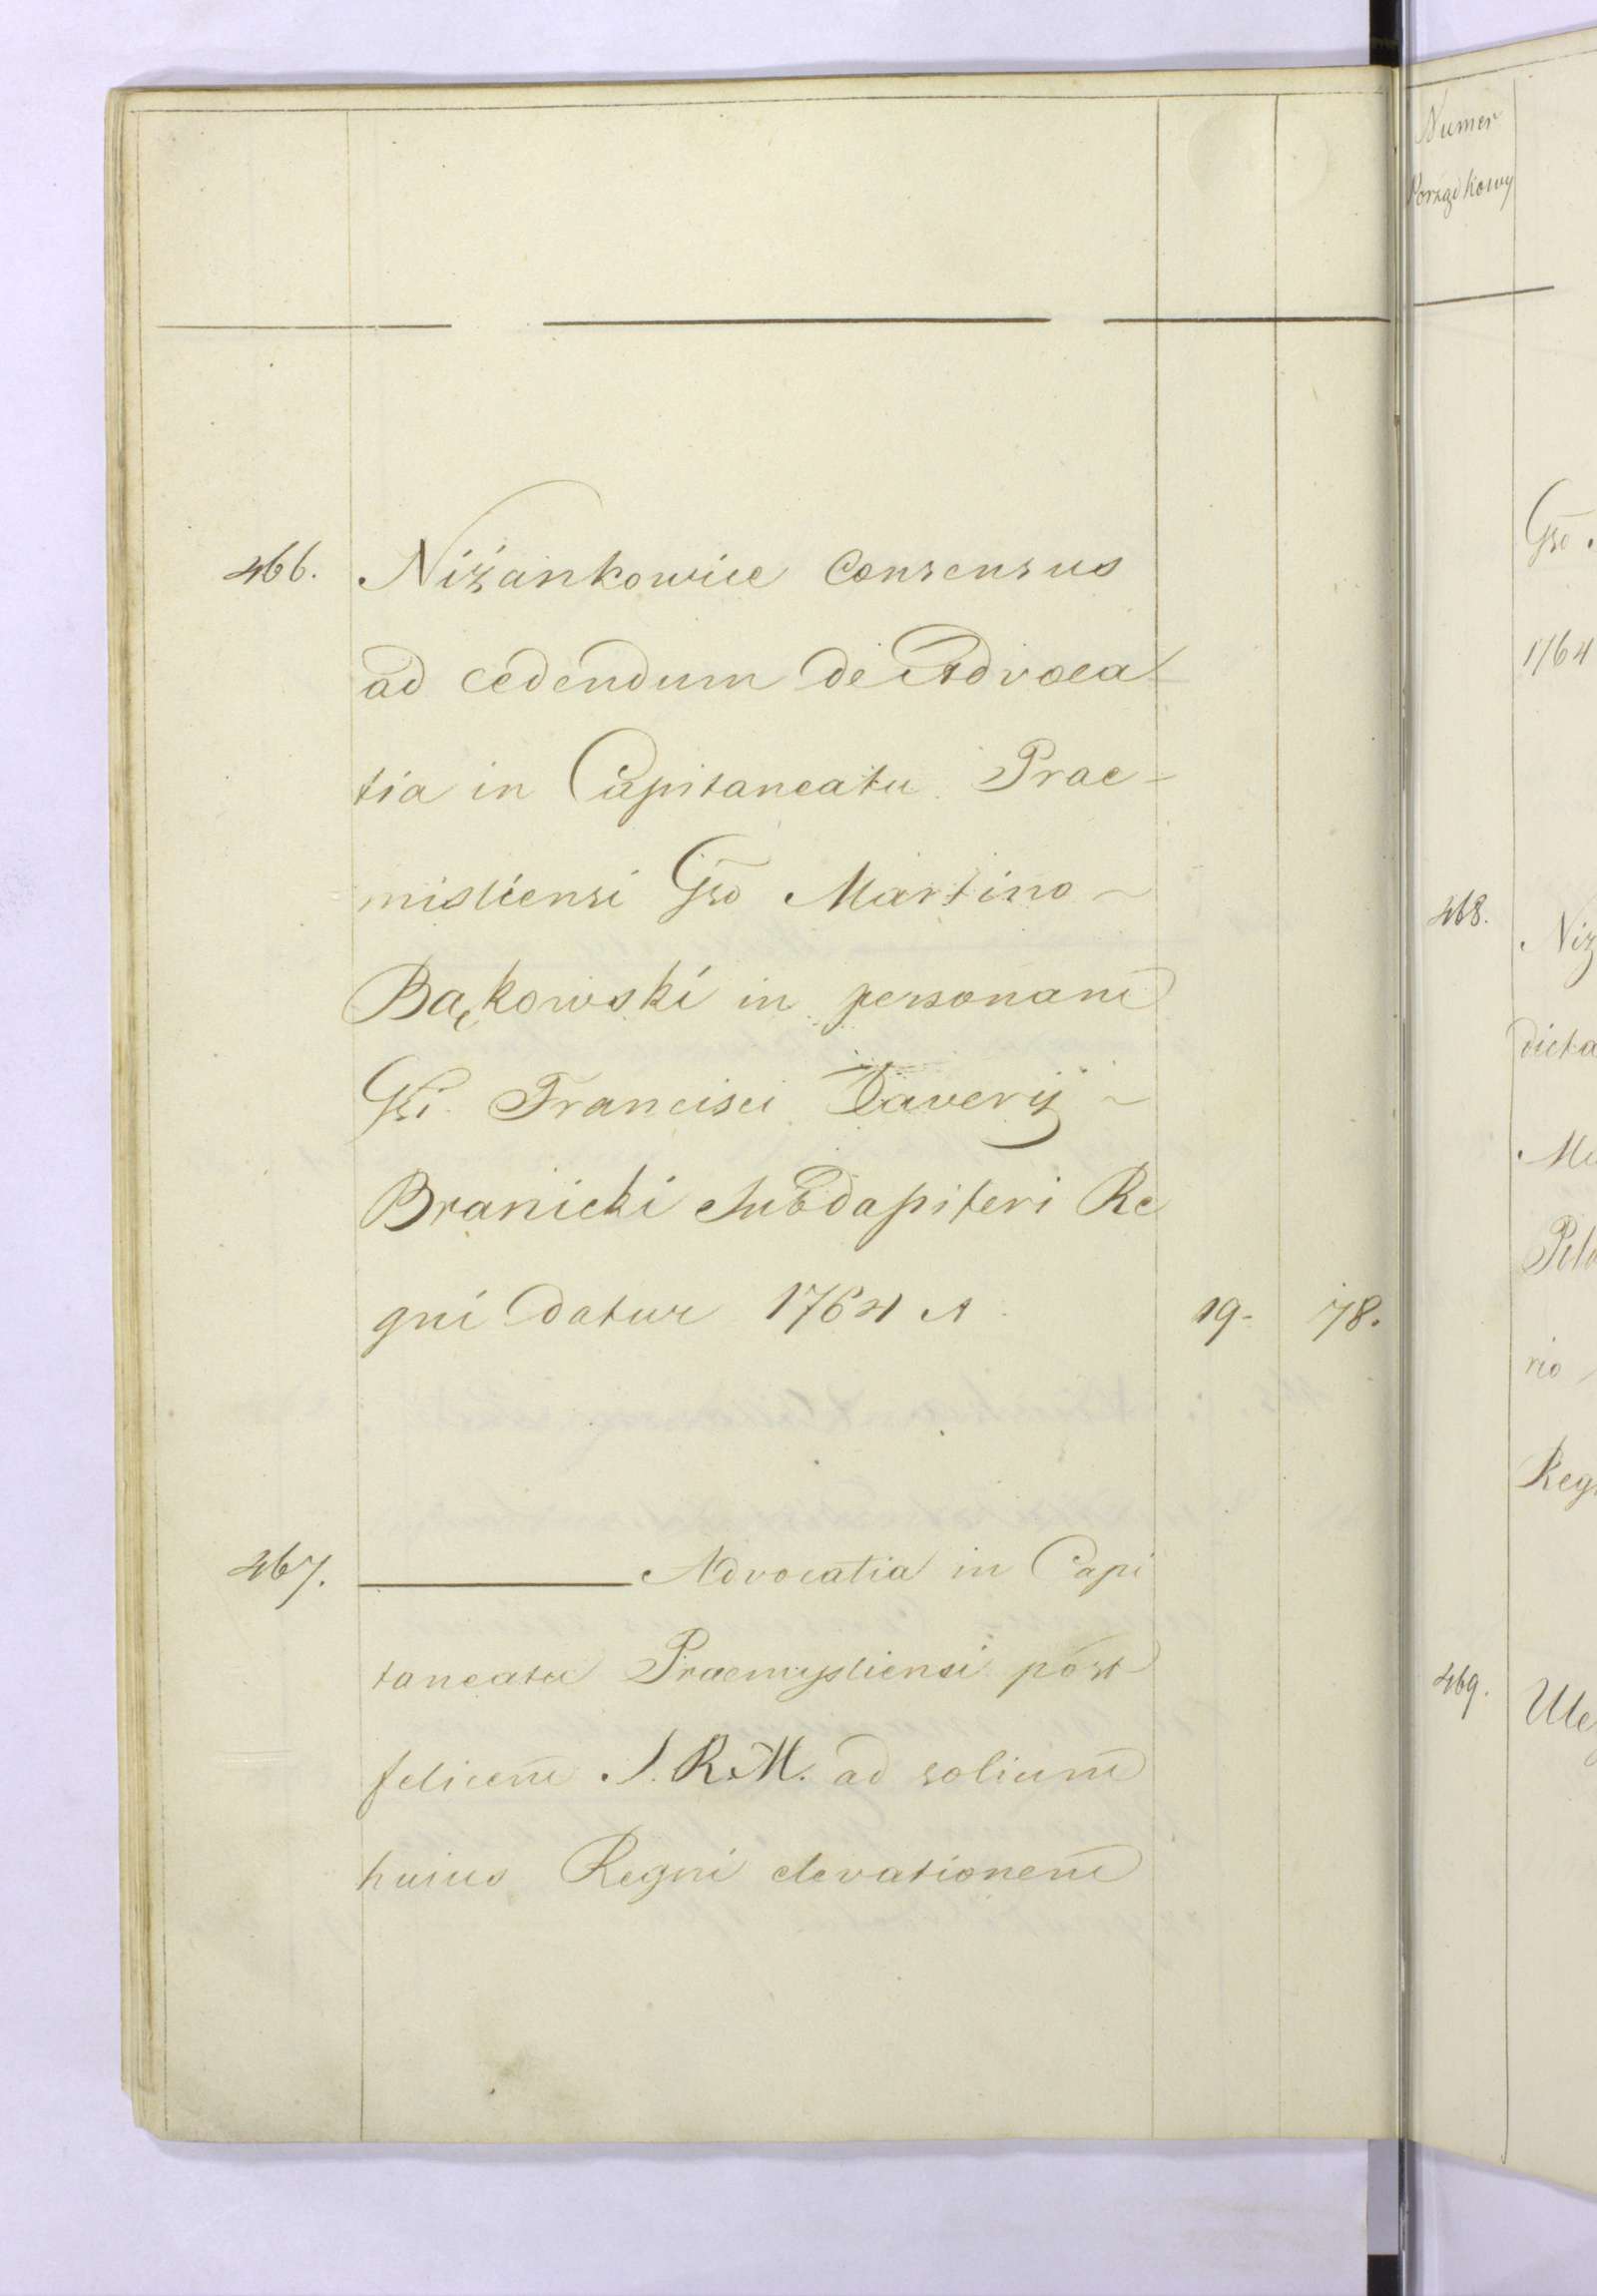 466. Niżankowice Consensus
ad cedendum de Advoca
tia in Capitaneatu Prae-
misliensi Gso Martino ~
Bąkowski in personam
Gsi Francisci Xaverij ~
Branicki Subdapiferi Re
gni datur 1764 A 19- 78.
467. ——— Advocatia in Capi
taneatu Praemysliensi post
felicem S.R.M. ad solium
huius Regni elevationem
Numer
Porządkowy
Gso
1764
468. Niż
dicta
rio
Reg
469.